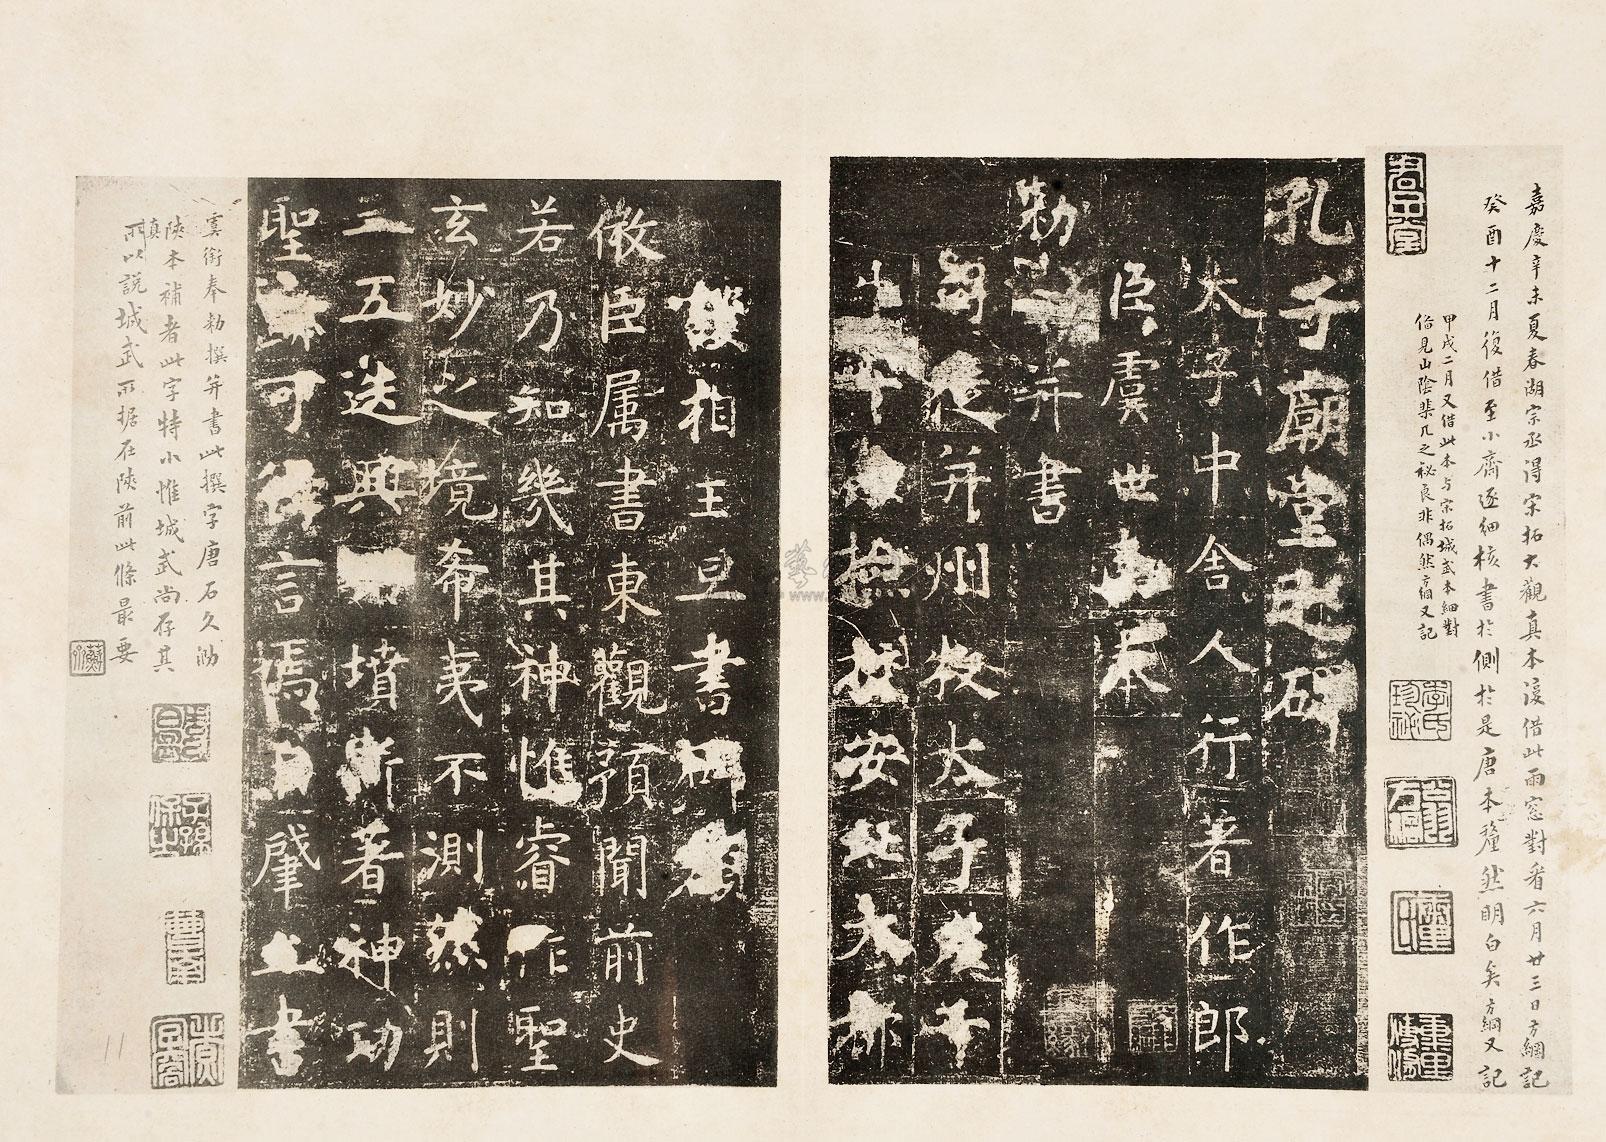 嘉慶辛未夏春湖宗丞得宋拓大觀真本復借此雨窓對看六月廿三日方綱記
癸酉十二月復借至小齋逐細核書於側於是唐本釐然明白矣方綱又記
甲戌二月又借此本与宋拓城武本細對
俗見山陰棐几之秘良非偶然方綱又記
孔子廟堂之碑
太子中舍人行著作郎
臣虞世南
奉
勅撰并書
司徒并州牧太子左千
牛率兼檢校安北大都
護相王旦書碑額
微臣属書東觀預聞前史
若乃知幾其神惟睿作聖
玄妙之境希夷不測然則
三五迭興典墳斯著神功
聖迹可得言焉自肇立書
虞銜奉勅撰并書此撰字唐石久泐
陝本補者此字特小惟城武尚存其真
所以說城武所据在陝前此條最要